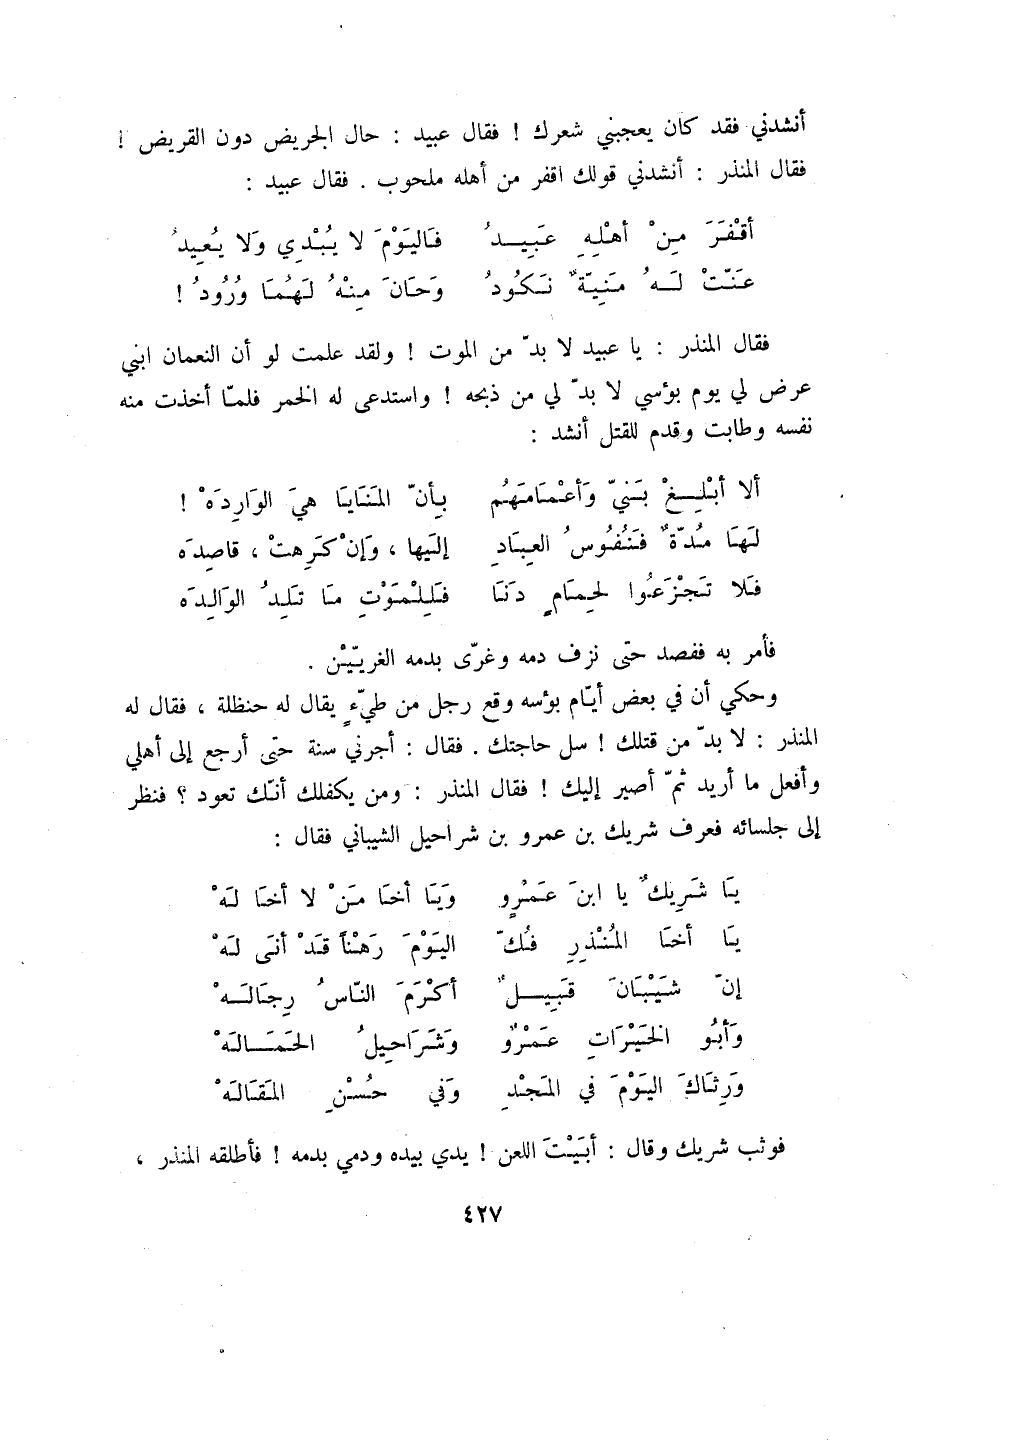 أنشدني فقد كان يعجبني شعرك ! فقال عبيد : حال الجريض دون القريض !
فقال المنذر : أنشدني قولك اقفر من أهله ملحوب . فقال عبيد :
أقْفَرَ مِنْ أهْلِهِ عَبِيدُ فَاليَوْمَ لا يُبْدِي وَلا يُعِيدُ
عَنّتْ لَهُ مَنِيّةٌ نَكُودُ وَحَانَ مِنْهُ لَهُمَا وُرُودُ !
فقال المنذر : يا عبيد لا بدّ من الموت ! ولقد علمت لو أن النعمان ابني
عرض لي يوم بؤسي لا بدّ لي من ذبحه ! واستدعى له الخمر فلمّا أخذت منه
نفسه وطابت وقدم للقتل أنشد :
ألا أبْلِغْ بَنيّ وَأعْمَامَهُم بِأنّ المَنَايَا هيَ الوَارِدَهْ !
لهَا مُدّةٌ فَنُفُوسُ العِبَادِ إلَيها ، وَإنْ كَرِهتْ ، قاصِدَه
فَلا تَجْزَعُوا لحِمَامٍ دَنَا فَلِلْمَوْتِ مَا تَلِدُ الوَالِدَه
فأمر به ففصد حتى نزف دمه وغرّى بدمه الغريّيْن .
وحكي أن في بعض أيّام بؤسه وقع رجل من طيّءٍ يقال له حنظلة ، فقال له
المنذر : لا بدّ من قتلك ! سل حاجتك . فقال : أجرني سنة حتى أرجع إلى أهلي
وأفعل ما أريد ثمّ أصير إليك ! فقال المنذر : ومن يكفلك أنّك تعود ؟ فنظر
إلى جلسائه فعرف شريك بن عمرو بن شراحيل الشيباني فقال :
يَا شَرِيكٌ يا ابنَ عَمْرٍو وَيَا أخَا مَنْ لا أخَا لَهْ
يَا أخَا المُنْذِرِ فُكّ اليَوْمَ رَهْناً قَدْ أنَى لَهْ
إنّ شَيْبَانَ قَبِيلٌ أكْرَمَ النّاسُ رِجَالَهْ
وَأبُو الخَيْرَاتِ عَمْرٌو وَشَرَاحِيلُ الحَمَالَهْ
وَرِثَاكَ اليَوْمَ في المَجْدِ وَفي حُسْنِ المَقَالَهْ
فوثب شريك وقال : أبَيْتَ اللعن ! يدي بيده ودمي بدمه ! فأطلقه المنذر ،
٤٢٧